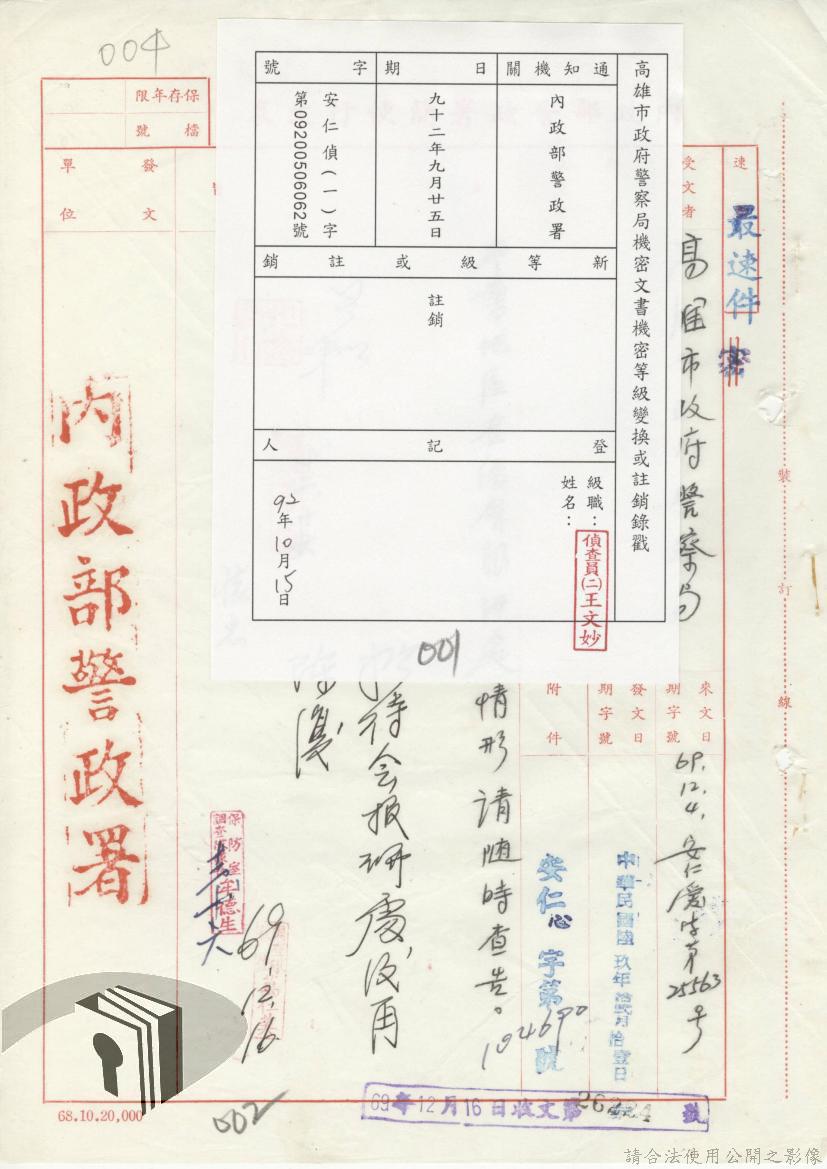 004
保存年限
檔號
速
最速件
密
受文者
高雄市政府警察局
高雄市政府警察局機密文書機密等級變換或註銷錄戳
通知機關
內政部警政署
日期
九十二年九月廿五日
字號
安仁偵(一)字
第0920050606２號
新等級或註銷
註銷
登記人
級職：
姓名：
偵查員(二)王文妙
92年10月15日
001
裝
訂
線
來文日
期字號
69.12.4.安仁處字第25563号
發文日
期字號
中華民國陸玖年拾貳月拾壹日
安仁心字第104690號
附件
情形請随時查告。
待会报研處後再
發文
單位
內政部警政署
保防室
69.12.16
002
69年12月16日收文第 號
68.10.20,000
請合法使用公開之影像